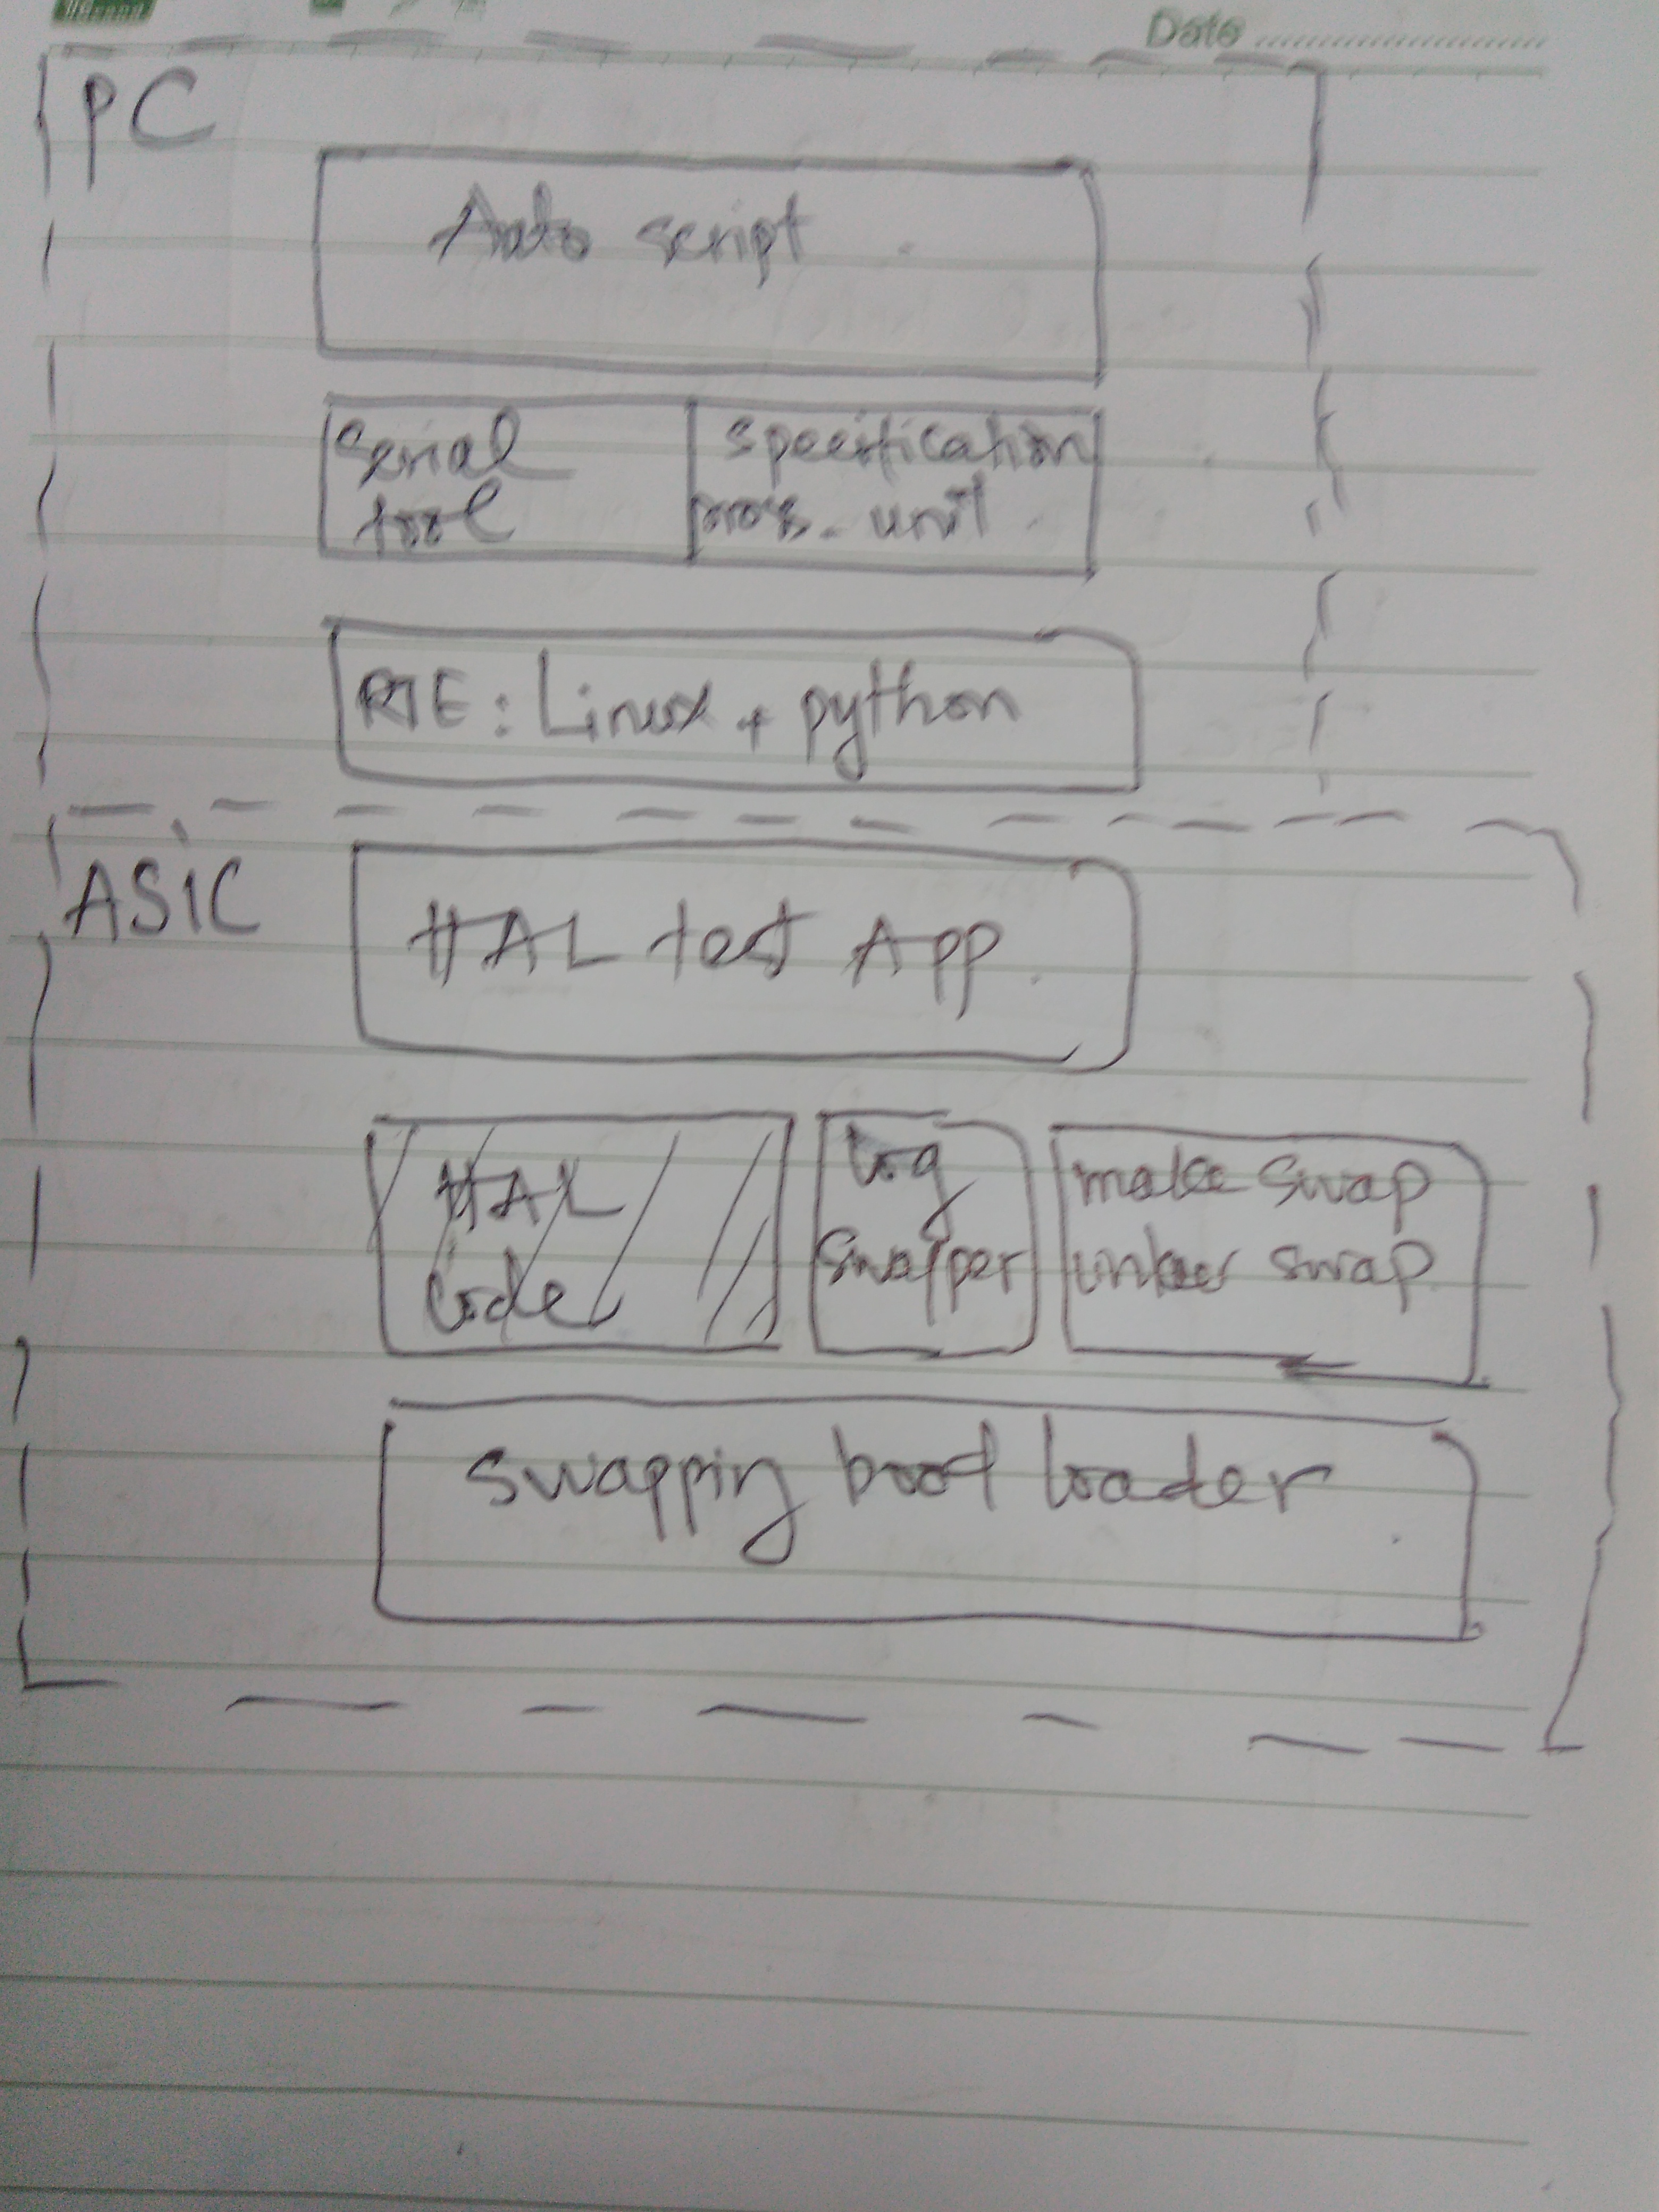 Date
PC
Auto script
serial
tool
specification
pros. unit
RTE: Linux + python
ASIC
HAL test App
HAL
code
log
swapper
make swap
linker swap
swapping boot loader